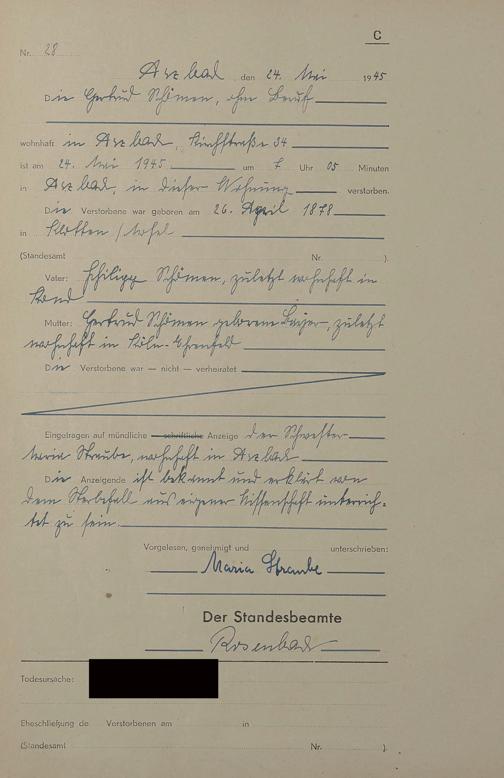 C
Nr. 28
Arzbach, den 24. Mai 1945
Die Gertrud Schömen, ohne Beruf
wohnhaft in Arzbach, Kirchstraße 34
ist am 24. Mai 1945 um 7 Uhr 05 Minuten
in Arzbach, in dieser Wohnung verstorben.
Die Verstorbene war geboren am 26. April 1878
in Klotten/Mosel
(Standesamt Nr. ).
Vater: Philipp Schömen, zuletzt wohnhaft in
Kond
Mutter: Gertrud Schömen geborene Bayer, zuletzt
wohnhaft in Köln-Ehrenfeld
Die Verstorbene war — nicht — verheiratet
Eingetragen auf mündliche — schriftliche — Anzeige der Schwester
Maria Straube, wohnhaft in Arzbach
Die Anzeigende ist bekannt und erklärt von
dem Sterbefall aus eigener Wissenschaft unterrich-
tet zu sein.
Vorgelesen, genehmigt und unterschrieben:
Maria Straube
Der Standesbeamte
Todesursache:
Eheschließung de Verstorbenen am in
(Standesamt Nr. ).